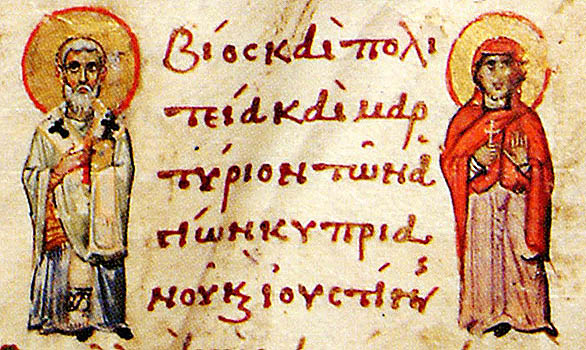 βίος καὶ πολι
τεία καὶ μαρ
τύριον τῶν ἁ
γίων κυπρια
νοῦ κ ἰουστίνης